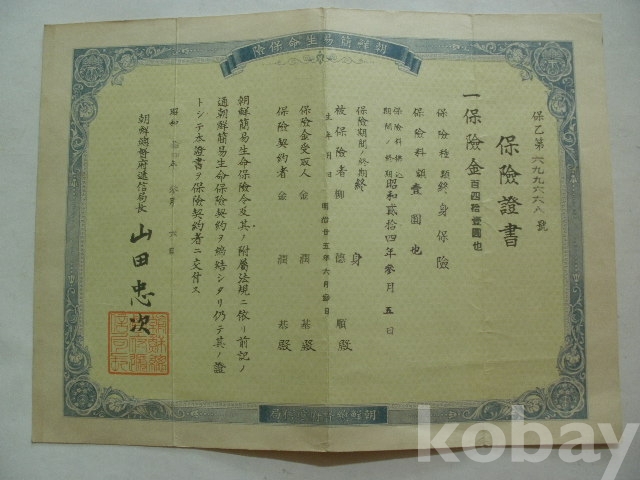 朝鮮簡易生命保險
保乙第六九九六六八號
保險證書
一保險金百四拾壹圓也
保險種類終身保險
保險料額壹圓也
保險料拂込期間ノ終期昭和貳拾四年參月五日
保險期間ノ終期終身
被保險者柳德順殿
生年月日明治廿五年六月
保險金受取人金潤基殿
保險契約者金潤基殿
朝鮮簡易生命保險令及其ノ附屬法規ニ依リ前記ノ
通朝鮮簡易生命保險契約ヲ締結シタリ仍テ其ノ證
トシテ本證書ヲ保險契約者ニ交付ス
昭和年月日
朝鮮總督府遞信局長山田忠次
朝鮮總督府遞信局
kobay